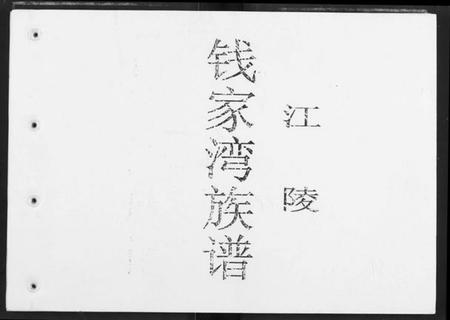 江陵
钱家湾族谱